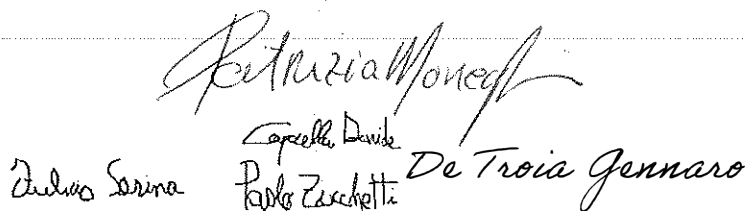 Patrizia Moneghi
Davide
Sarina Paolo Zucchetti De Troia Gennaro